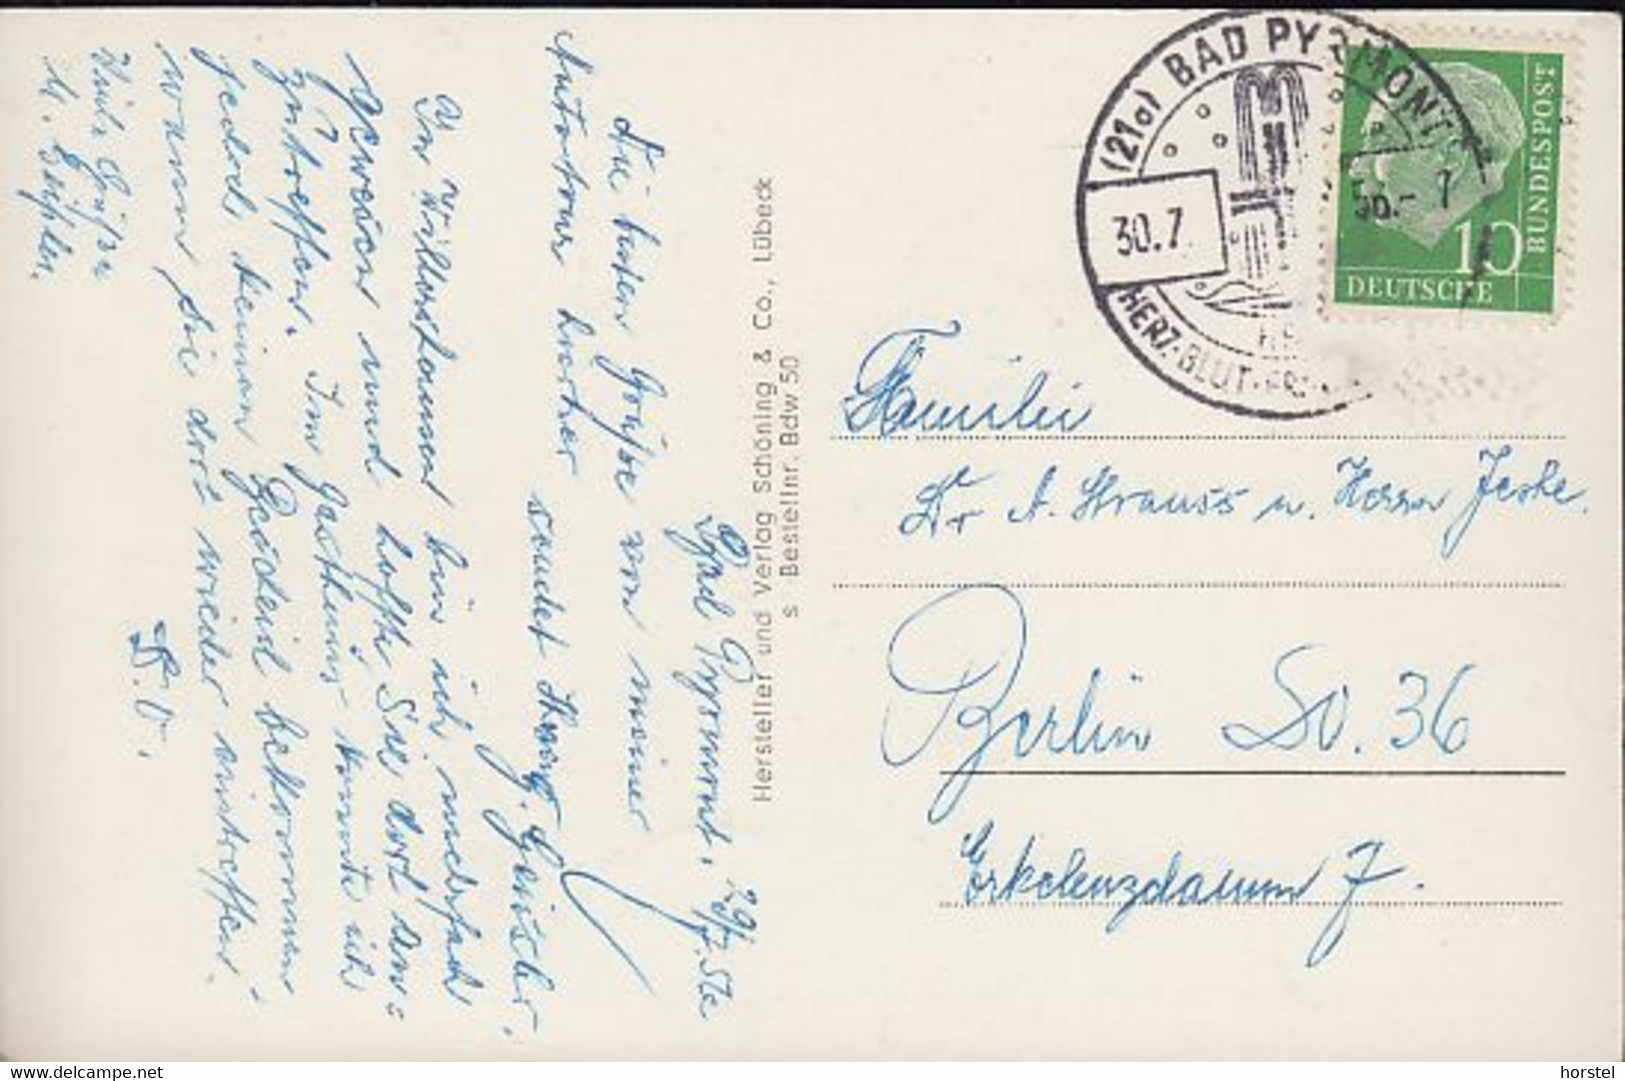 Bad Pyrmont, 29/7. 56
Die besten Grüße von meiner
Autotour hierher sendet Ihnen
In Wilkershausen bin ich mehrfach
gewesen und hoffte Sie dort an=
zutreffen. Im Gasthaus konnte ich
jedoch keinen Bescheid bekommen
wann Sie dort wieder eintreffen.
Viele Grüße
D. O.
Hersteller und Verlag Schöning & Co., Lübeck
s Bestellnr. Bdw 50
(21a) BAD PYRMONT
30.7
56.- 7
HERZ-BLUT-FR
10
BUNDESPOST
DEUTSCHE
Familie
Dr A. Strauss u. Herrn Jeske.
Berlin So. 36
Erkelenzdamm 7.
horstel